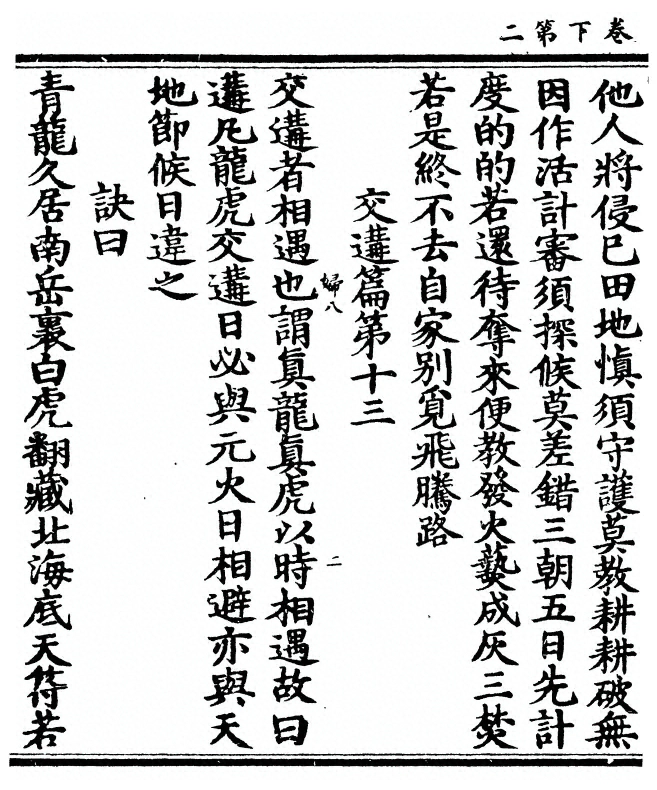 卷下第二
他人將侵巳田地慎須守護莫教耕耕破無
因作活計審須探候莫差錯三朝五日先計
度的的若還待奪來便教發火爇成灰三焚
若是終不去自家別覓飛騰路
交遘篇第十三
婦八
二
交遘者相遇也謂眞龍眞虎以時相遇故曰
遘凡龍虎交遘日必與元火日相避亦與天
地節候日違之
訣曰
青龍久居南岳裏白虎翻藏北海底天符若